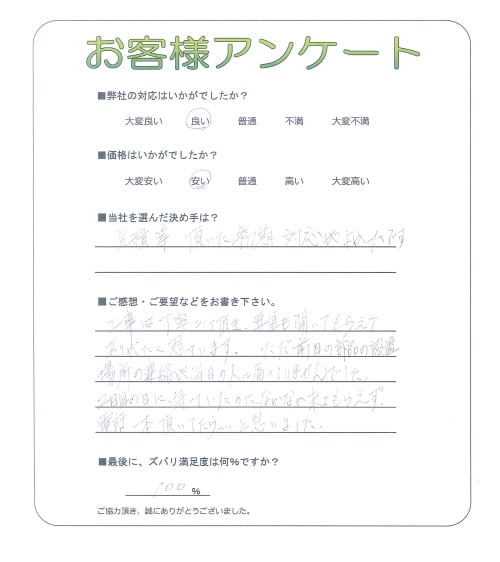 お客様アンケート
■弊社の対応はいかがでしたか？
大変良い 良い 普通 不満 大変不満
■価格はいかがでしたか？
大変安い 安い 普通 高い 大変高い
■当社を選んだ決め手は？
見積等 頂いた 対応が よかったです
■ご感想・ご要望などをお書き下さい。
工事は丁寧にして頂き、要望も聞いてもらえて
ありがたく思っています。 ただ前日の部品の設置
場所の連絡が当日の人に届いていませんでした。
2日目の日に、待っていたのに、なかなか来てもらえず、
電話一本頂いてたら…と思いました。
■最後に、ズバリ満足度は何%ですか？
100 %
ご協力頂き、誠にありがとうございました。